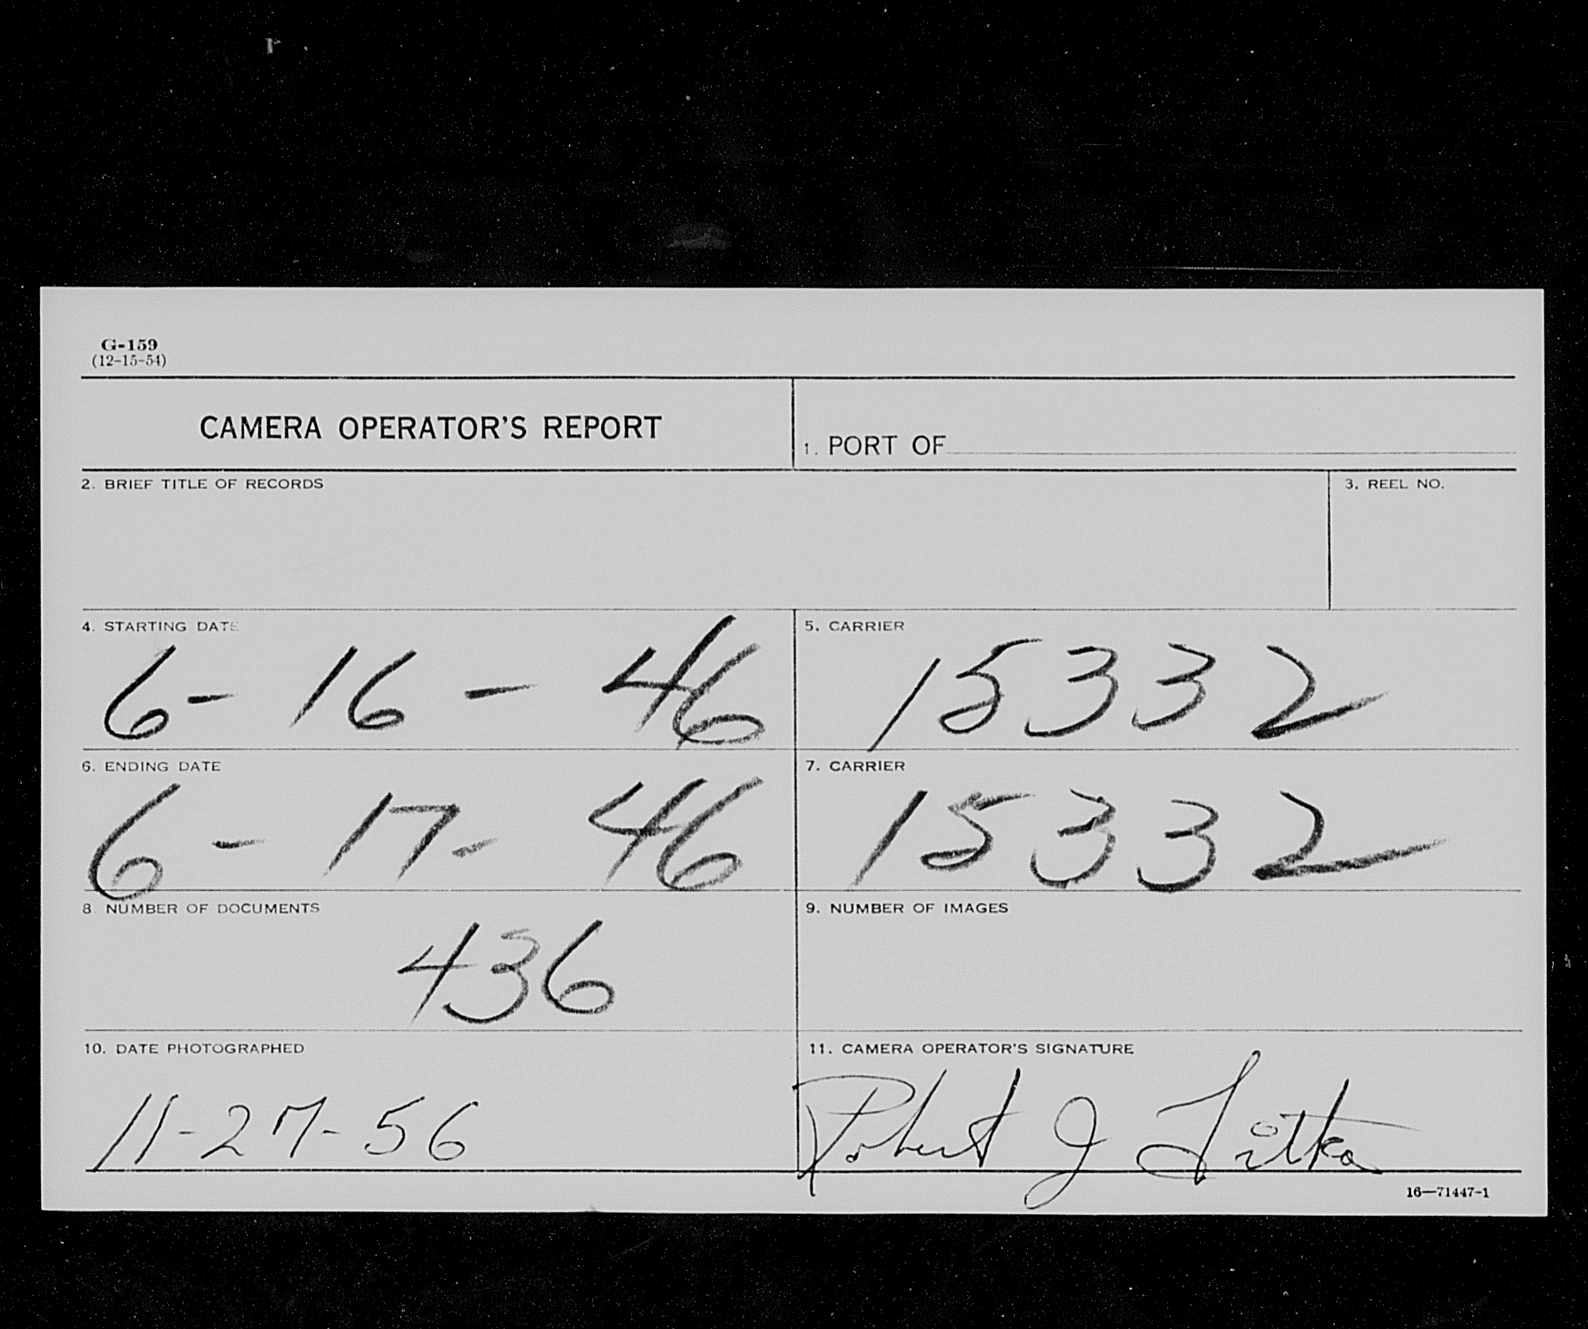 G-159
(12-15-54)
CAMERA OPERATOR'S REPORT
1. PORT OF
2. BRIEF TITLE OF RECORDS
3. REEL NO.
4. STARTING DATE
6-16-46
5. CARRIER
15332
6. ENDING DATE
6-17-46
7. CARRIER
15332
8 NUMBER OF DOCUMENTS
436
9. NUMBER OF IMAGES
10. DATE PHOTOGRAPHED
11-27-56
11. CAMERA OPERATOR'S SIGNATURE
Robert J
16—71447-1